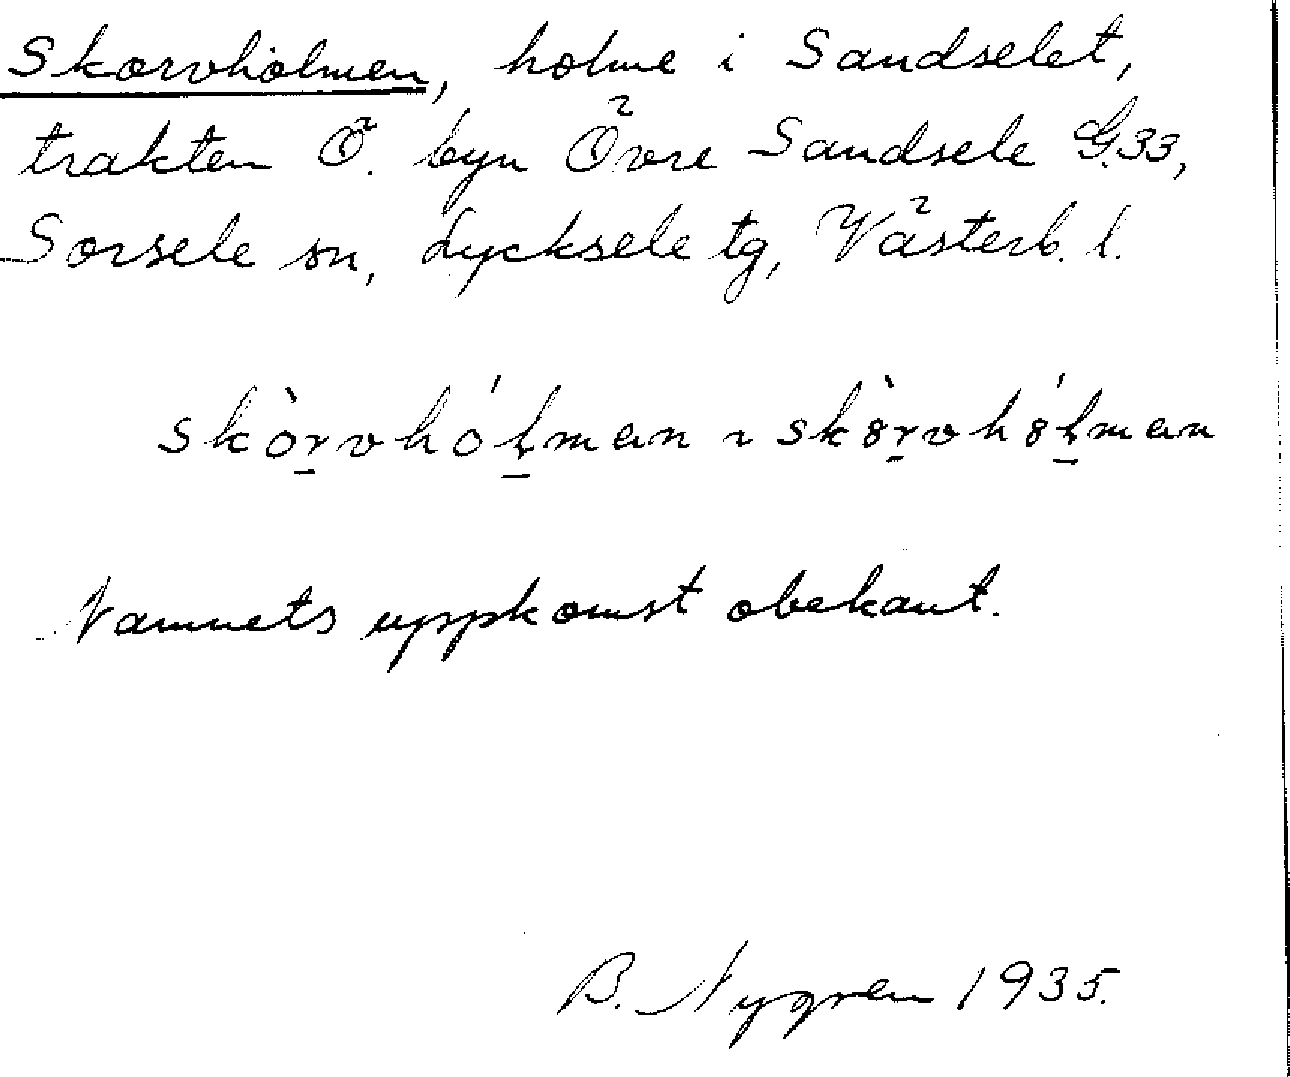 Skorvholmen, holme i Sandselet,
trakten Ö. byn Övre Sandsele G.33,
Sorsele sn, Lycksele tg, Västerb. l.
skòrvhólman ~ skòrvhólman
Namnets uppkomst obekant.
B. Nygren 1935.